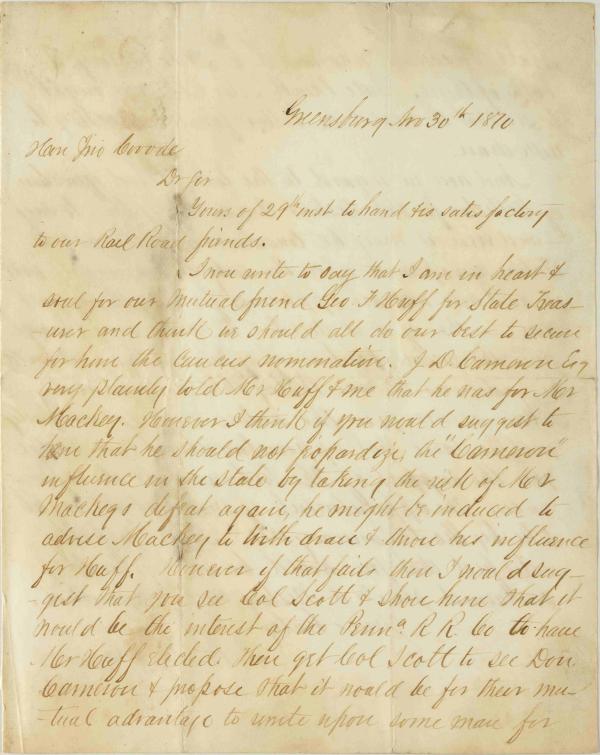 Greensburg Nov 30th 1870
Hon Jno Covode
Dr Sir
Yours of 29th inst to hand & is satisfactory
to our Rail Road friends.
I now write to say that I am in heart &
soul for our mutual friend Geo F Huff for State Treas-
-urer and think we should all do our best to secure
for him the caucus nomonation. J. D. Cameron Esq
very plainly told Mr Huff & me that he was for Mr
Mackey. However I think if you would suggest to
him that he should not jopardize, the "Cameron"
influence in the state by taking the risk of Mr
Mackeys defeat again, he might be induced to
advise Mackey to withdraw & throw his influence
for Huff. However if that fails then I would sug-
-gist that you see Col Scott & show him that it
would be the interest of the Penna. R. R. Co to have
Mr Huff Elected. Then get Col Scott to see Don
Cameron & propose that it would be for their mu-
-tual advantage to unite upon some man for